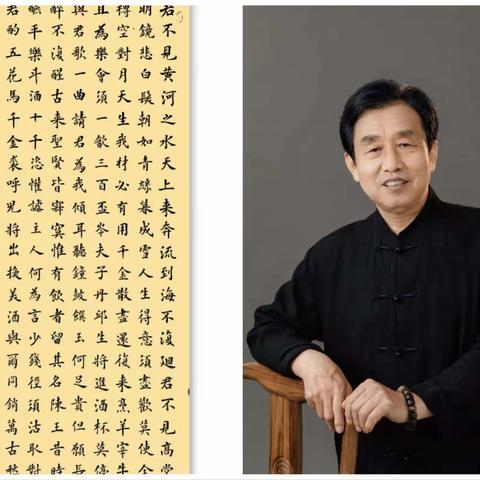 君不見黄河之水天上来奔流到海不復廻君不見高堂
明鏡悲白髮朝如青絲暮成雪人生得意須盡歡莫使金
樽空對月天生我材必有用千金散盡還復来烹羊宰牛
且為樂會須一飲三百盃岑夫子丹邱生將進酒杯莫停
與君歌一曲請君為我傾耳聽鐘鼓饌玉何足貴但願長
醉不復醒古来聖賢皆寂寞惟有飲者留其名陳王昔時
宴平樂斗酒十千恣懽謔主人何為言少錢徑須沽取對
君酌五花馬千金裘呼兒將出換美酒與爾同銷萬古愁